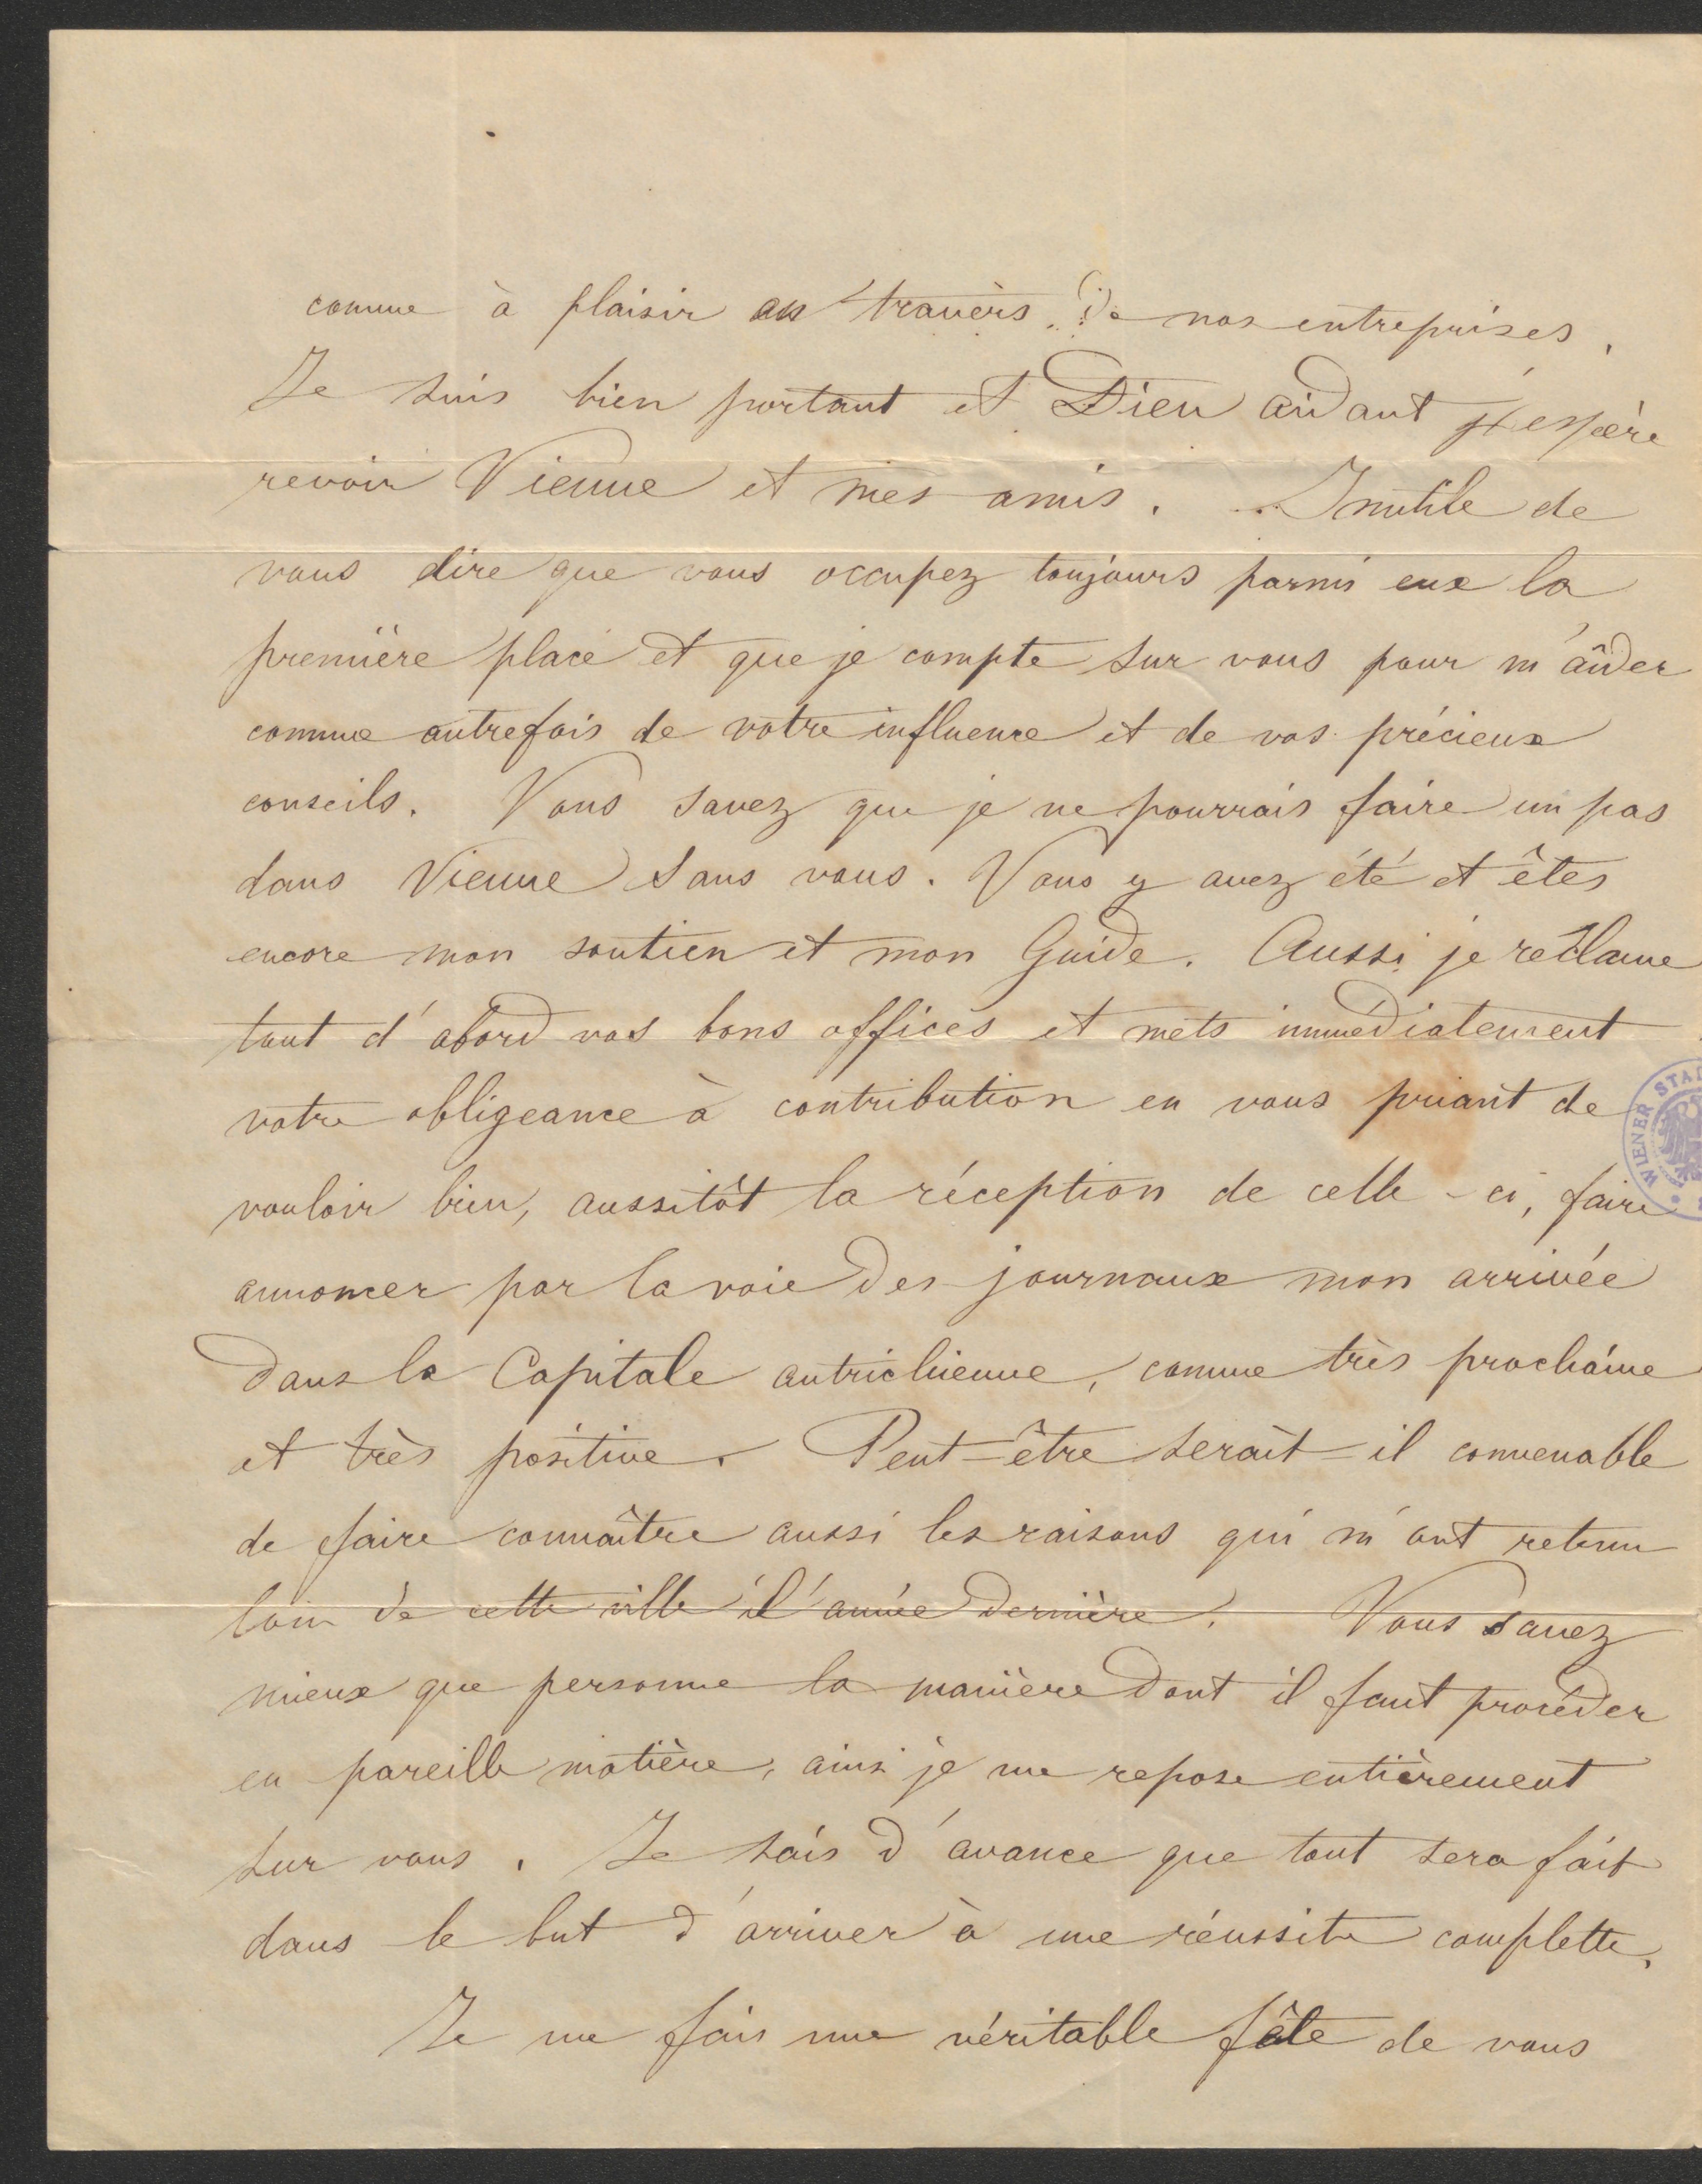 comme à plaisir au travèrs de nos entreprises.
Je suis bien portant et Dieu aidant j'espère
revoir Vienne et mes amis. Inutile de
vous dire que vous occupez toujours parmi eux la
première place et que je compte sur vous pour m'aider
comme autrefois de votre influence et de vos précieux
conseils. Vous savez que je ne pourrais faire un pas
dans Vienne sans vous. Vous y avez été et êtes
encore mon soutien et mon Guide. Aussi je réclame
tout d'abord vos bons offices et mets immédiatement
votre obligeance à contribution en vous priant de
vouloir bien, aussitôt la réception de celle-ci, faire
annoncer par la voie des journaux mon arrivée
dans la Capitale autrichienne, comme très prochaine
et très positive. Peut-être serait-il convenable
de faire connaître aussi les raisons qui m'ont retenu
loin de cette ville l'année dernière. Vous savez
mieux que personne la manière dont il faut procéder
en pareille matière, ainsi je me repose entièrement
sur vous. Je sais d'avance que tout sera fait
dans le but d'arriver à une réussite complette.
Je me fais une véritable fête de vous
WIENER STAD